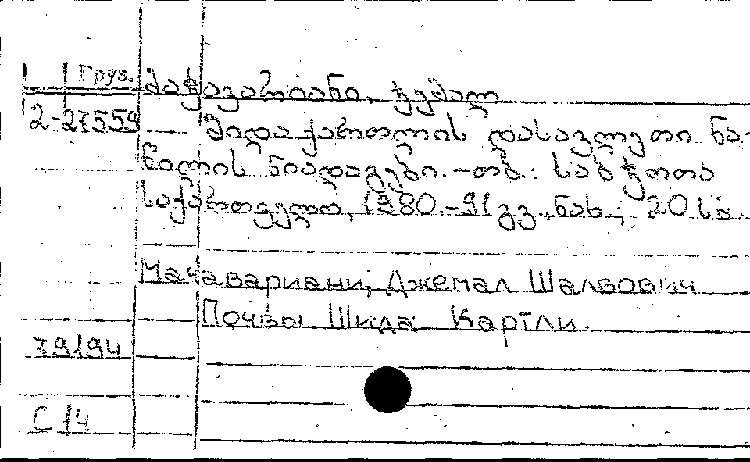 Груз. მაჭავარიანი, ჯემალ
2-27559 შიდა ქართლის დასავლეთი ნა-
წილის ნიადაგები. -თბ.: საბჭოთა
საქართველო, 1980.-91 გვ., ნახ.; 20 სმ.
Мачавариани, Джемал Шалвович
Почвы Шида Картли.
79194
С 14